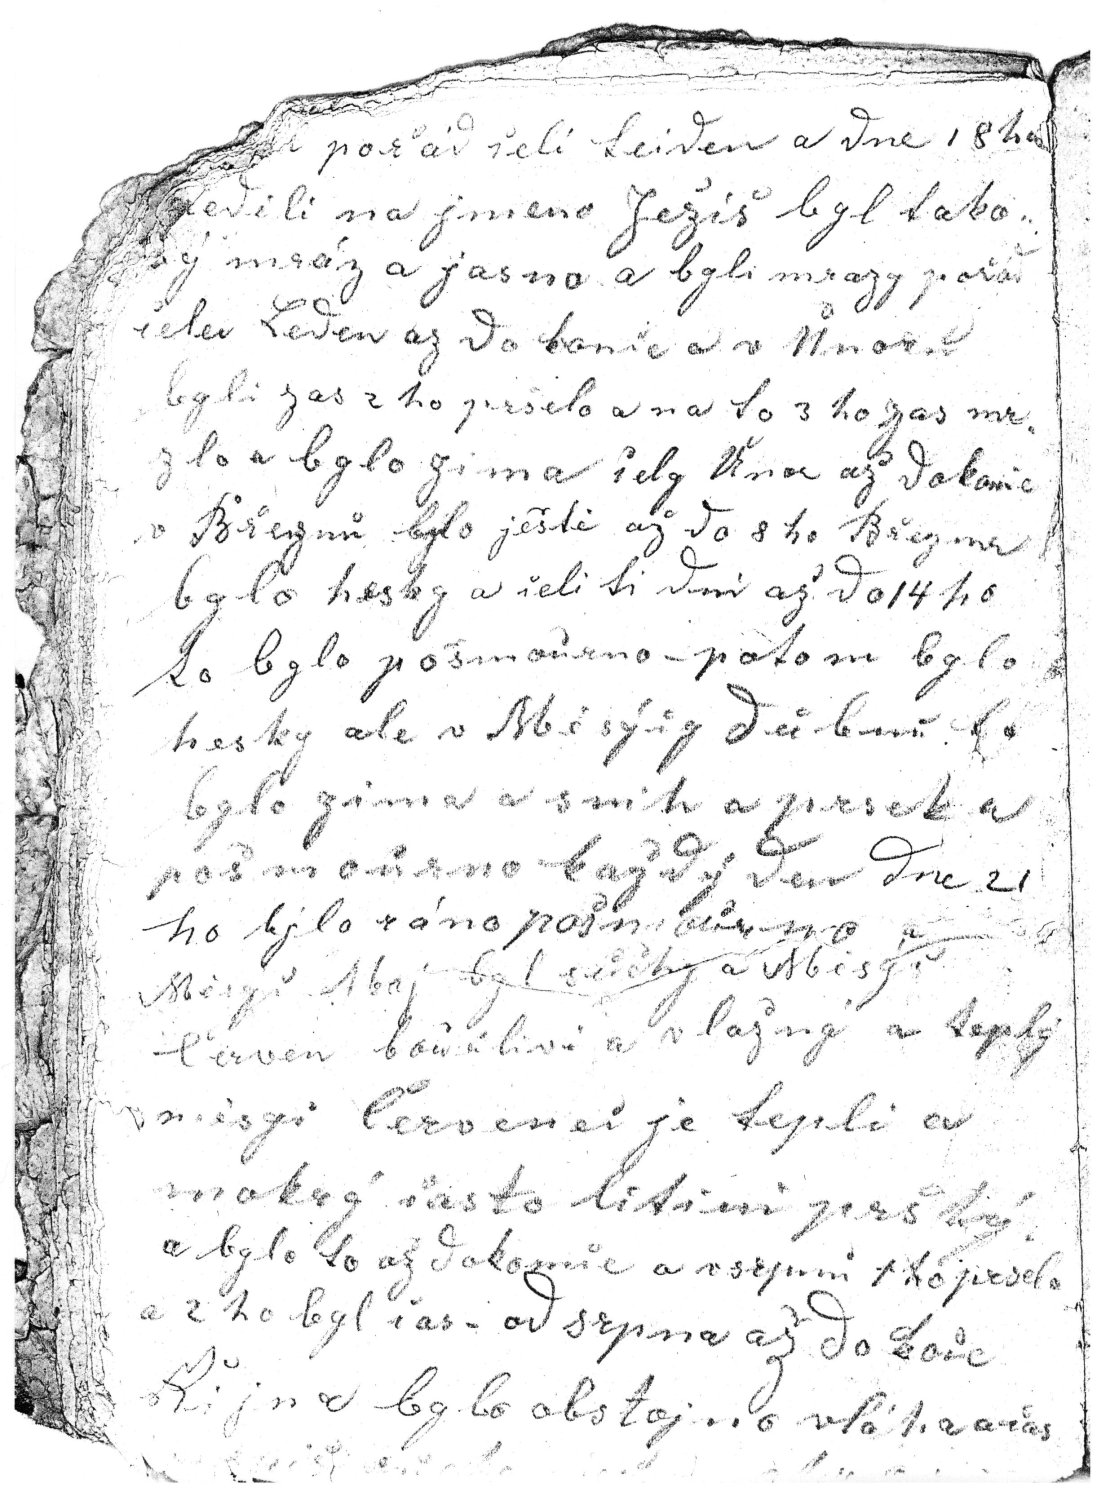 pořád čeli Leiden a dne 18 ho
ledili na jmeno Ježiš bgl tako..
vý mráz a jasno a bgli mrazg pořád
čelei Leden až do konie a v Ǔnorů
bgli zas 2 ho pršelo a na to 3 ho zas mr.
zlo a bglo zima čelg Ǔnor až do konie
v Březnů bglo ještě až do 8 ho Březnr
bglo heskg a čeli ti dni až do 14 ho
to bglo pošmoůrno - potom bglo
heskg ale v Měsýig Důbnů to
bglo zima a snih a prsek a
pošmoůrno každý den dne 21
ho bylo ráno pošmoůrno a
Měsgi Maj bgl sůchý a Měsgi
Červen boůřlivi a vlažný a teplý
měsgi Červenei je tepli a
mokrý často litimi prški
a bglo to až dokonůe a vsrpnu 1 ho prselo
a 2 ho bgl čas - od srpna až do koňe
Řijna bglo obstojno vláha a čas